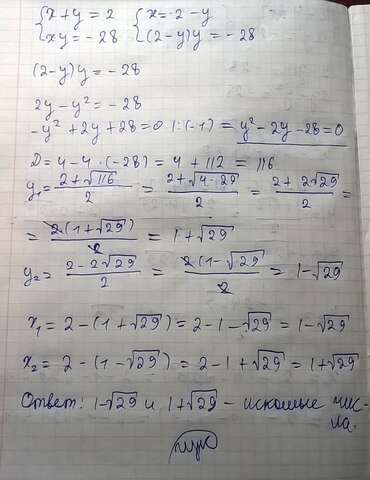 {x+y=2 {x=2-y
{xy=-28 {(2-y)y=-28
(2-y)y=-28
2y-y²=-28
-y²+2y+28=0 |:(-1) = y²-2y-28=0
D=4-4·(-28)=4+112=116
y₁= (2+√116)/2 = (2+√4·29)/2 = (2+2√29)/2 =
= 2(1+√29)/2 = 1+√29
y₂= (2-2√29)/2 = 2(1-√29)/2 = 1-√29
x₁=2-(1+√29)=2-1-√29=1-√29
x₂=2-(1-√29)=2-1+√29=1+√29
Ответ: 1-√29 и 1+√29 - искомые чис-
ла.